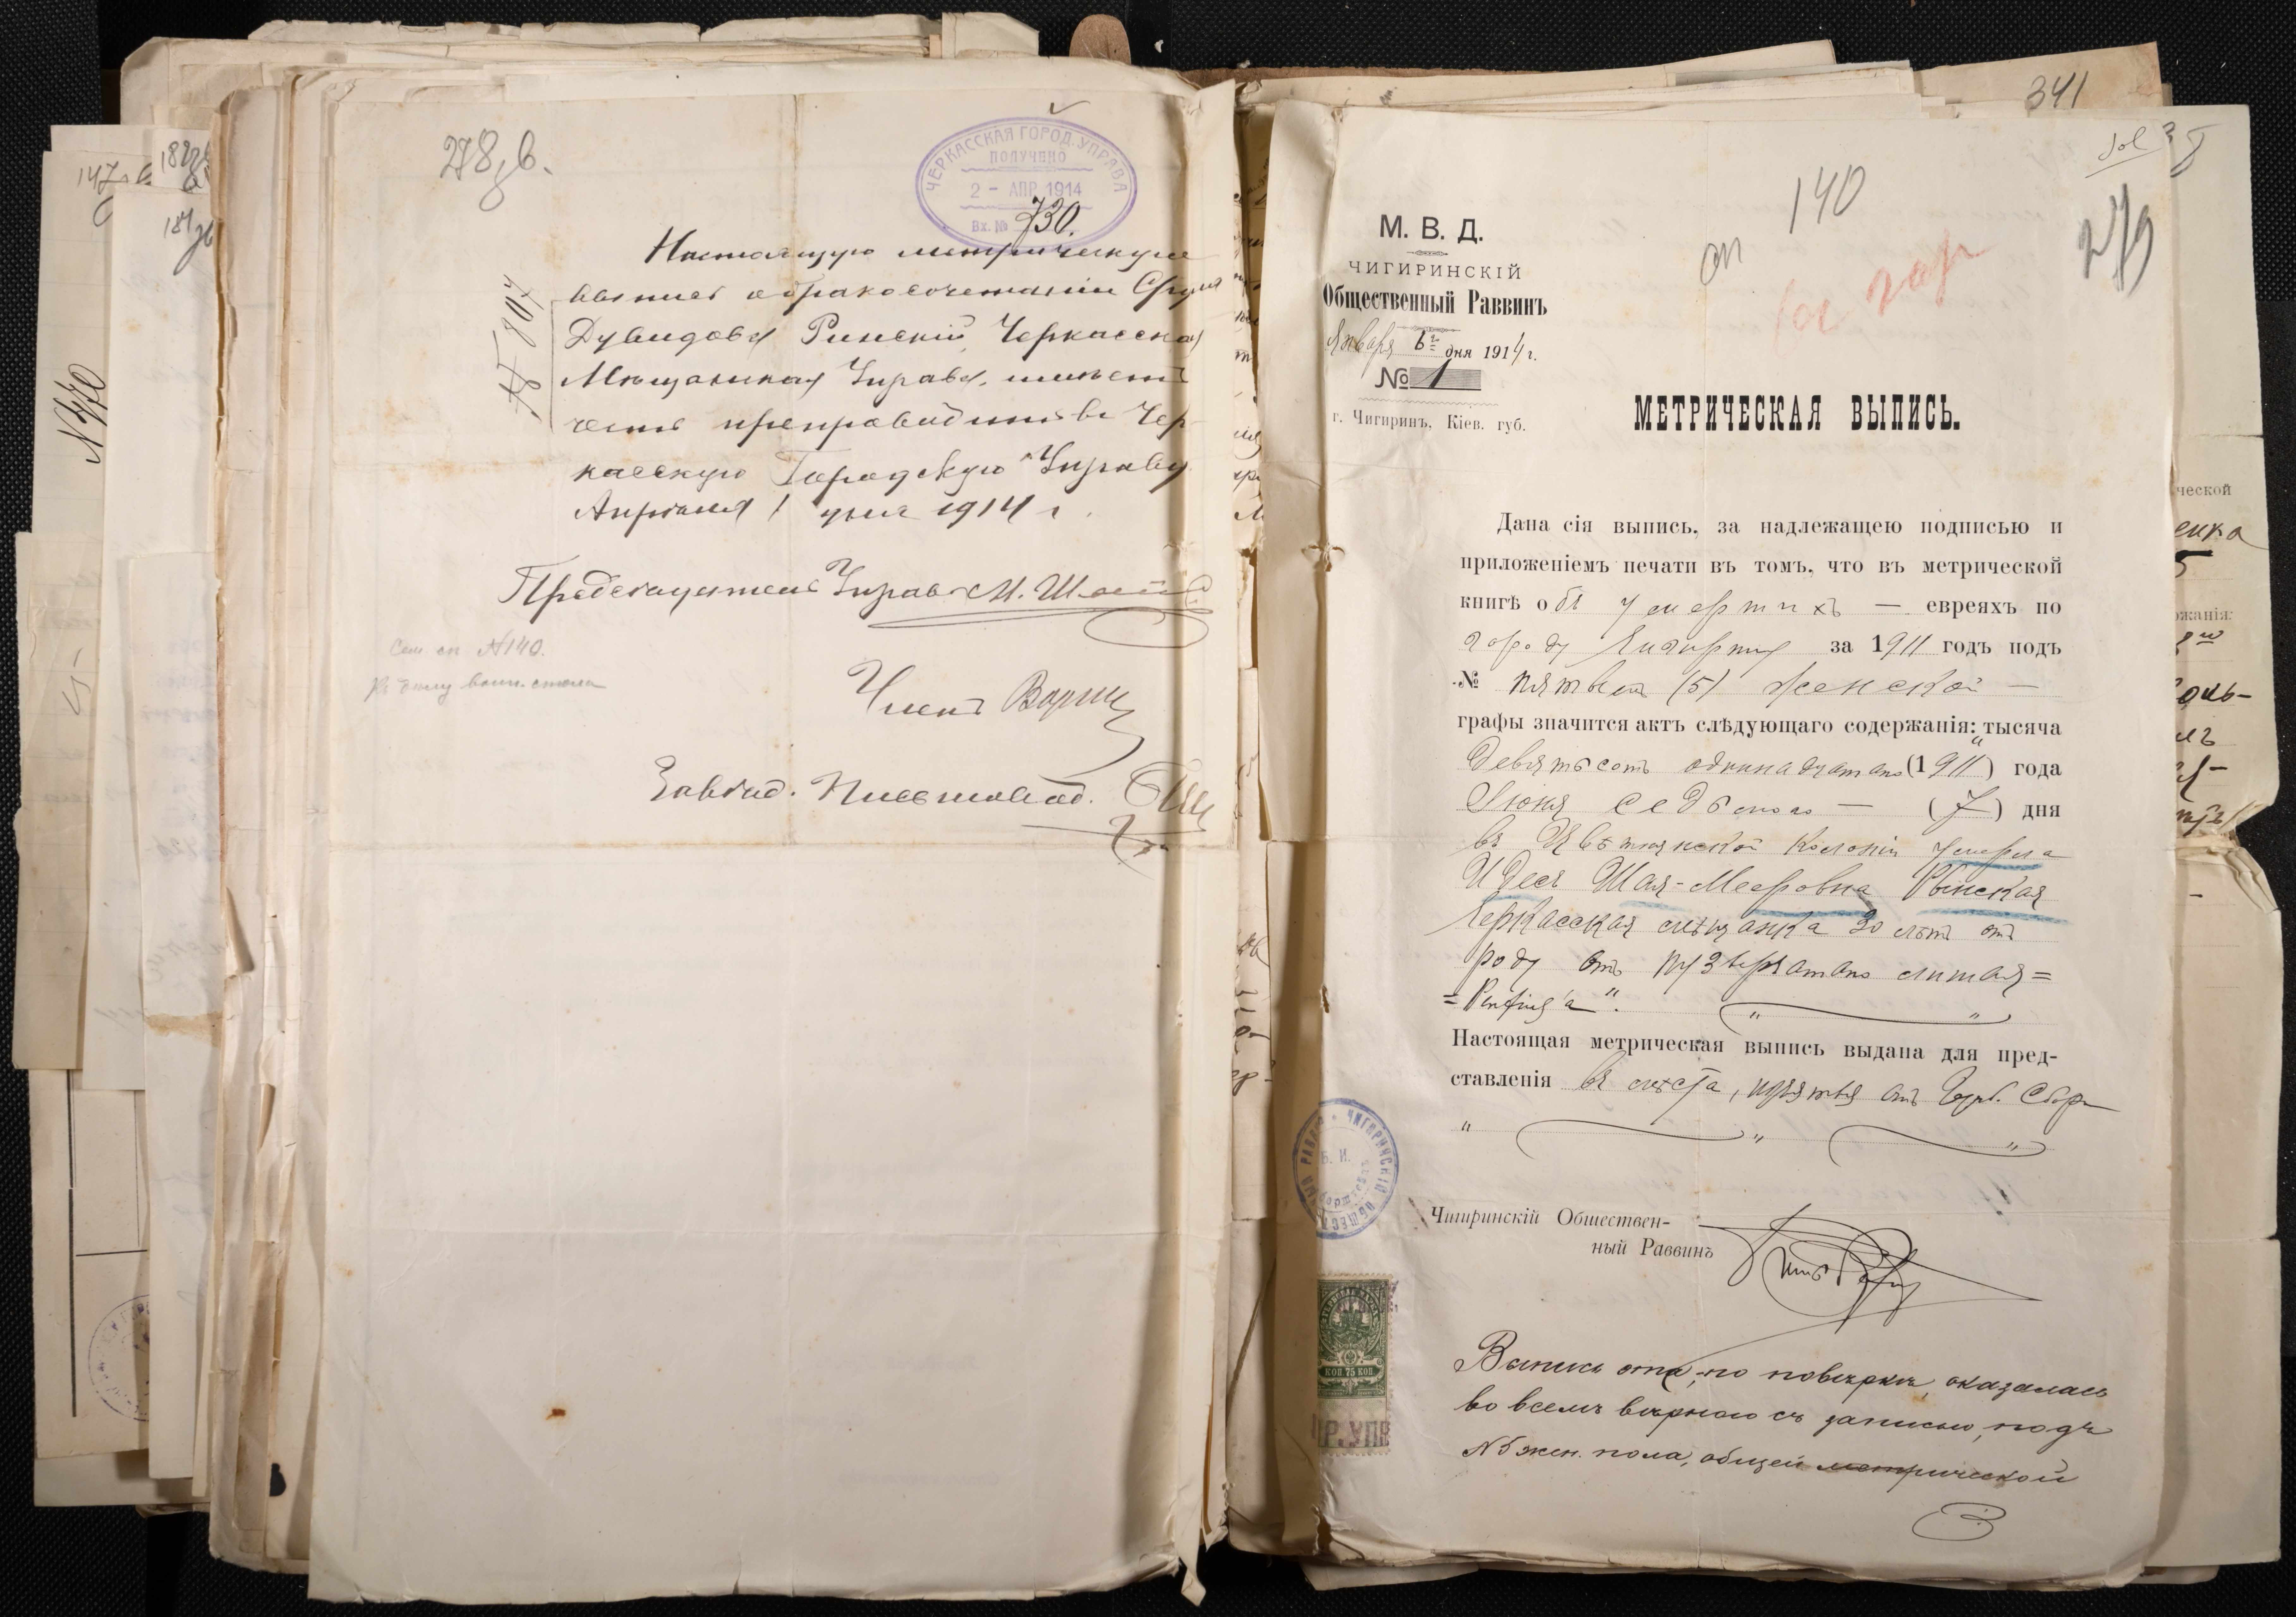 278зв.
ЧЕРКАССКАЯ ГОРОД. УПРАВА
ПОЛУЧЕНО
2 - АПР 1914
Вх. № 730.
№ 807
Настоящую метрическую
выпись о бракосочетаніи Сруля
Дувидова Рынскій, Черкасская
Мѣщанская Управа, имѣетъ
честь препроводить въ Чер-
касскую Городскую Управу
Апрѣля 1 дня 1914 г.
Предсѣдатель Управы М.
Сем сп. №140.
Къ дѣлу воин. стола
Членъ
Завѣд. Письмовод.
147
N 470
341
140
сп
279
М. В. Д.
ЧИГИРИНСКІЙ
Общественный Раввинъ
Января 6го дня 1914 г.
№ 1
г. Чигиринъ, Кіев. губ.
МЕТРИЧЕСКАЯ ВЫПИСЬ.
Дана сія выпись, за надлежащею подписью и
приложеніемъ печати въ томъ, что въ метрической
книгѣ объ умершихъ — евреяхъ по
городу Чигирину за 1911 годъ подъ
№ пятымъ (5) женской —
графы значится актъ слѣдующаго содержанія: „тысяча
Девятьсотъ одиннадцатаго (1911) года
Іюня седьмого — (7) дня
въ колоніи умерла
Идеся Шая-Мееровна Рынская
Черкасская мѣщанка 30 лѣтъ отъ
роду отъ пузырчатаго лишая=
=Pemfiug'a".
Настоящая метрическая выпись выдана для пред-
ставленія въ мѣста, изъятыя отъ Герб. Сбора
ЧИГИРИНСКІЙ ОБЩЕСТВ. РАВВИНЪ
Б. И.
Чигиринскій Обществен-
ный Раввинъ
КОП. 75 КОП.
Р. УПР
Выпись эта, по повѣркѣ, оказалась
во всемъ вѣрною съ записью, подъ
№5 жен. пола, общей метрической